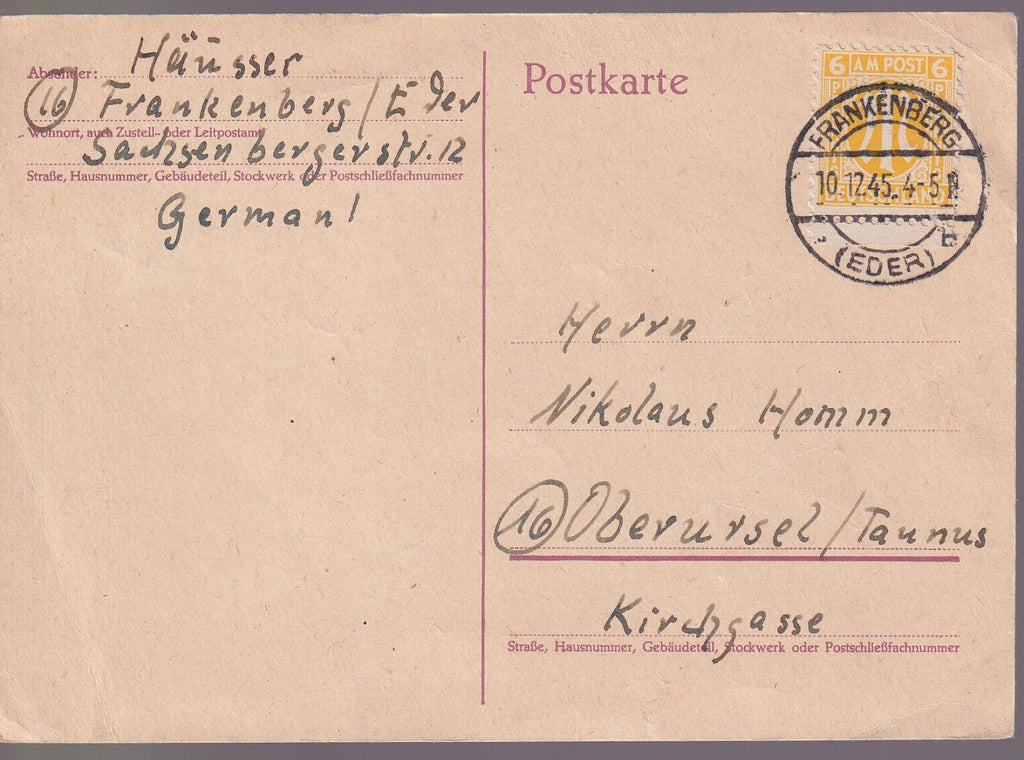 Absender: Häusser
(16) Frankenberg/Eder
Wohnort, auch Zustell- oder Leitpostamt
Sachsenbergerstr. 12
Straße, Hausnummer, Gebäudeteil, Stockwerk oder Postschließfachnummer
German!
Postkarte
6 AM POST 6
DEUTSCHLAND
FRANKENBERG
10.12.45.4-5
b
(EDER)
Herrn
Nikolaus Homm
(16) Oberursel/Taunus
Kirchgasse
Straße, Hausnummer, Gebäudeteil, Stockwerk oder Postschließfachnummer